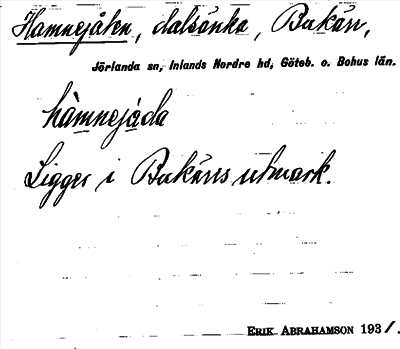 Hamnejåla, dalsänka, Bukärr,
Jörlanda sn, Inlands Nordre hd, Göteb. o. Bohus län.
hàmnejåda
Ligger i Bukärrs utmark.
ERIK ABRAHAMSON 1931.